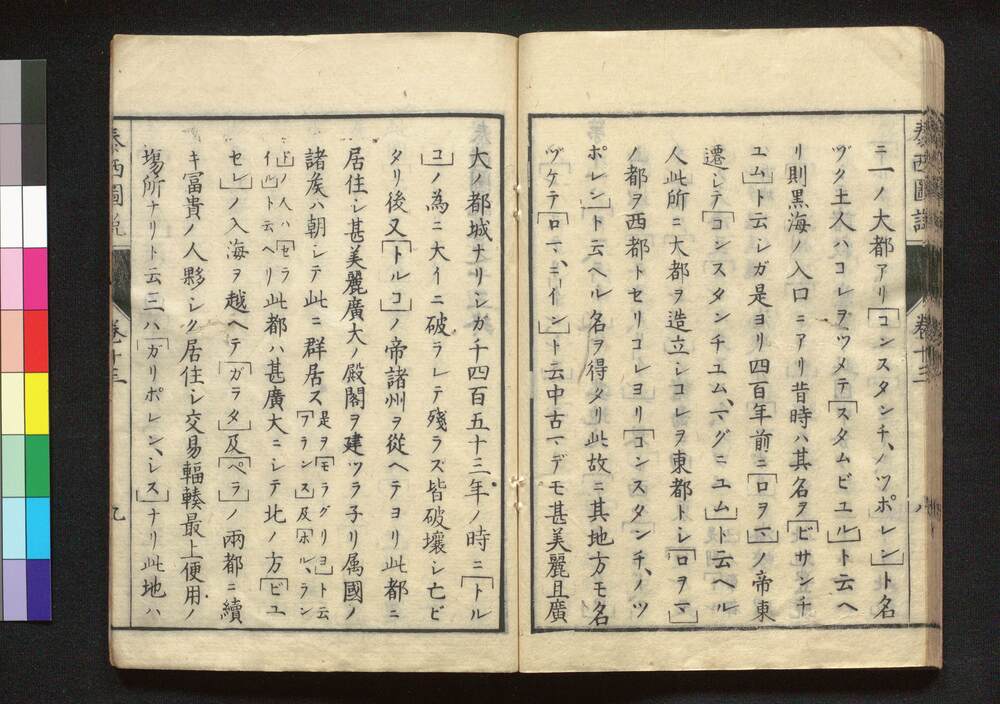 泰西圖説
卷十三
八
ニ一ノ大都アリ「コンスタンチ、ノツポレン」ト名
ヅク土人ハコレヲツメテ「スタムビユル」ト云ヘ
リ則黒海ノ入口ニアリ昔時ハ其名ヲ「ビサンチ
ユム」ト云シガ是ヨリ四百年前ニ「ロヲマ」ノ帝東
遷シテ「コンスタンチユム、マグニユム」ト云ヘル
人此所ニ大都ヲ造立シコレヲ東都トシ「ロヲマ」
ノ都ヲ西都トセリコレヨリ「コンスタンチ、ノツ
ポレン」ト云ヘル名ヲ得タリ此故ニ其地方モ名
ヅケテ「ロマ、ニーイン」ト云中古マデモ甚美麗且廣
大ノ都城ナリシガ千四百五十三年ノ時ニ「トル
コ」ノ為ニ大イニ破ラレテ殘ラズ皆破壞シ亡ビ
タリ後又「トルコ」ノ帝諸州ヲ從ヘテヨリ此都ニ
居住シ甚美麗廣大ノ殿閣ヲ建ツラ子リ属國ノ
諸矦ハ朝シテ此ニ群居ス是ヲ「モラグリヨ」ト云「アランス」及「ホル、ラン
ド」ノ人ハ「セライル」ト云ヘリ此都ハ甚廣大ニシテ北ノ方「ビユ
セレ」ノ入海ヲ越ヘテ「ガラタ」及「ペラ」ノ兩都ニ續
キ冨貴ノ人夥シク居住シ交易輻輳最上便用ノ
塲所ナリト云三ハ「ガリポレン、レス」ナリ此地ハ
泰西圖説
卷十三
九